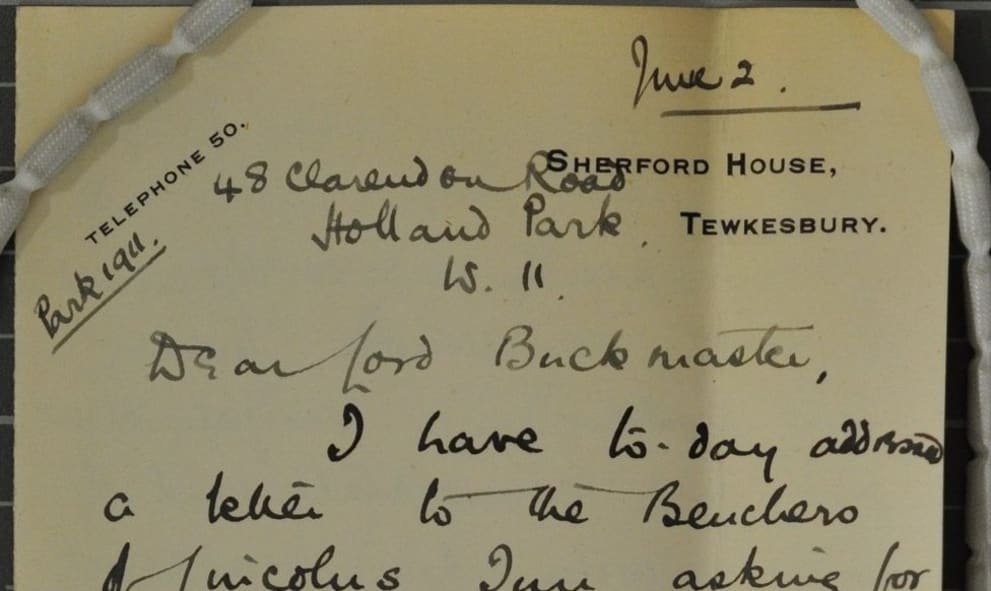 June 2.
TELEPHONE 50.
Park 1911.
SHERFORD HOUSE,
TEWKESBURY.
48 Clarendon Road
Holland Park.
W. 11.
Dear Lord Buckmaster,
I have to-day addressed
a letter to the Benchers
of Lincolns Inn asking for